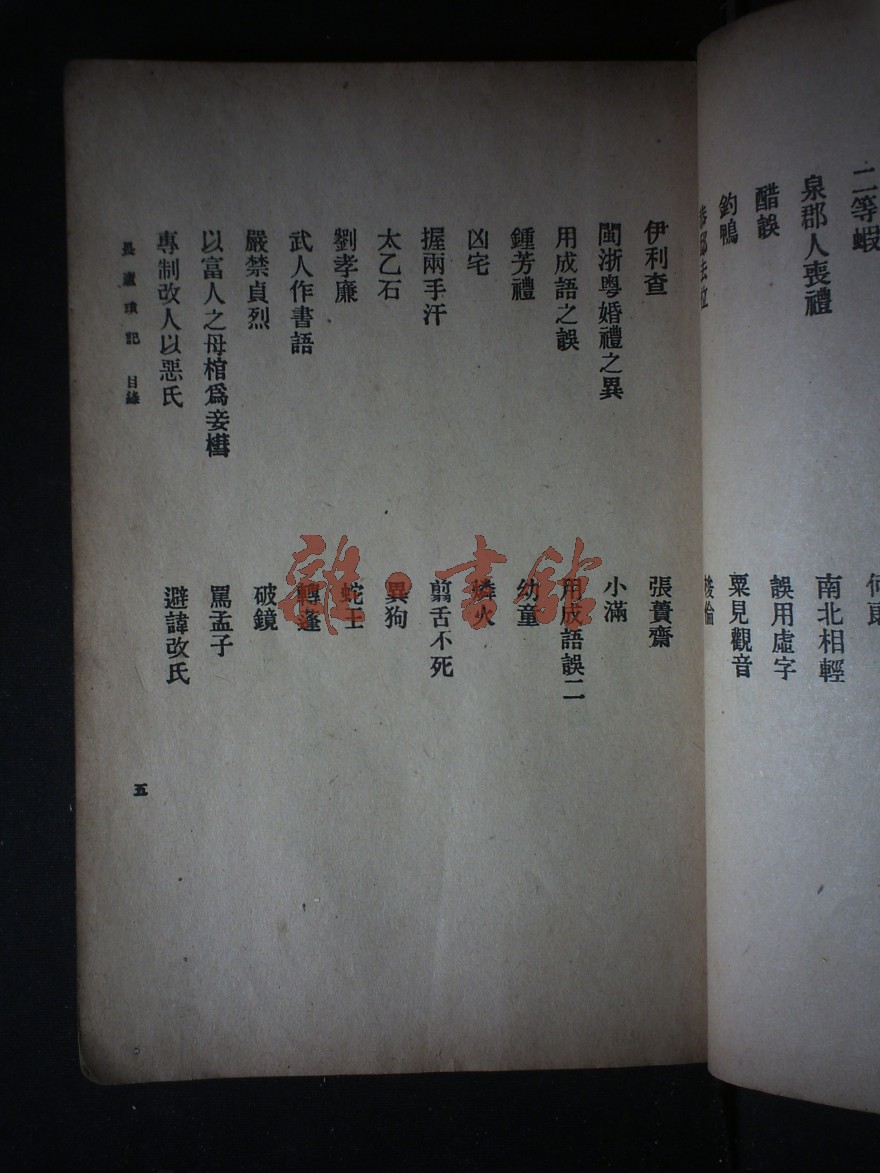 二等蝦
泉郡人喪禮
南北相輕
醋誤
誤用虛字
釣鴨
粟見觀音
伊利查
張蕢齋
閩浙粵婚禮之異
小滿
用成語之誤
用成語誤二
鍾芳禮
幼童
凶宅
燐火
握兩手汗
翦舌不死
太乙石
異狗
劉孝廉
蛇王
武人作書語
轉蓬
嚴禁貞烈
破鏡
以富人之母棺爲妾槥
罵孟子
專制改人以惡氏
避諱改氏
畏廬瑣記 目錄
五
雜·書館